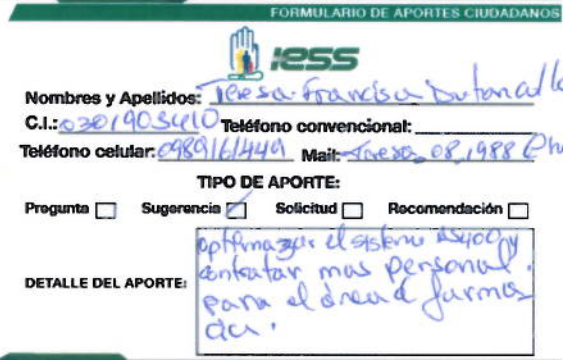 FORMULARIO DE APORTES CIUDADANOS
IESS
Nombres y Apellidos: Teresa Francisca
C.I.: 0301903410 Teléfono convencional:
Teléfono celular: 0989161449 Mail: Teresa_08,1988
TIPO DE APORTE:
Pregunta Sugerencia Solicitud Recomendación
optimazar el sistema AS400 y
contratar mas personal.
DETALLE DEL APORTE: para el área de farmas
cia.